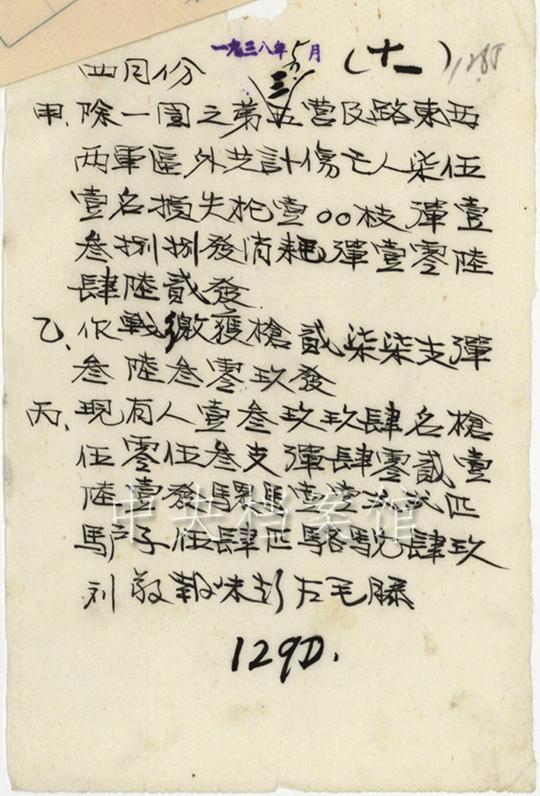 一九三八年5月 (十一) 128
四月份 三
甲、除一團之第五营及路東西
两軍區外共計傷亡人柒伍
壹名損失枪壹00枝彈壹
叁捌捌發消耗彈壹零陸
肆陸貳發
乙、作戰繳獲槍貳柒柒支彈
叁陸叁零玖發
丙、現有人壹叁玖玖肆名槍
伍零伍叁支彈肆零貳壹
陸壹發騾馬壹壹 貳匹
馬户子伍肆匹駱駝肆玖
刘 報 彭左毛滕
129D.
中央档案馆